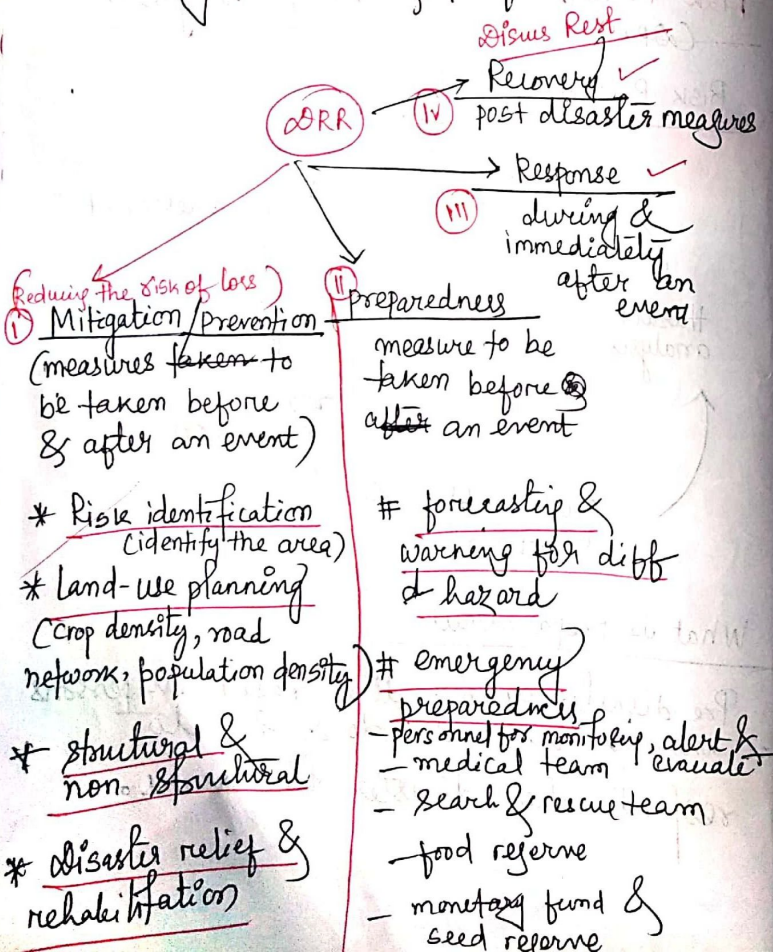 Disus Rest
Recovery
IV
post disaster measures
DRR
Response
III
during &
immediately
after an
event
(Reducing the risk of loss)
I Mitigation/Prevention
(measures taken to
be taken before
& after an event)
* Risk identification
(identify the area)
* Land-use planning
(crop density, road
network, population density)
* structural &
non structural
* Disaster relief &
rehabilitation
II
preparedness
measure to be
taken before &
after an event
# forecasting &
warning for diff
hazard
# emergency
preparedness
- personnel for monitoring, alert &
evacuate
- medical team
- search & rescue team
- food reserve
- monetary fund &
seed reserve